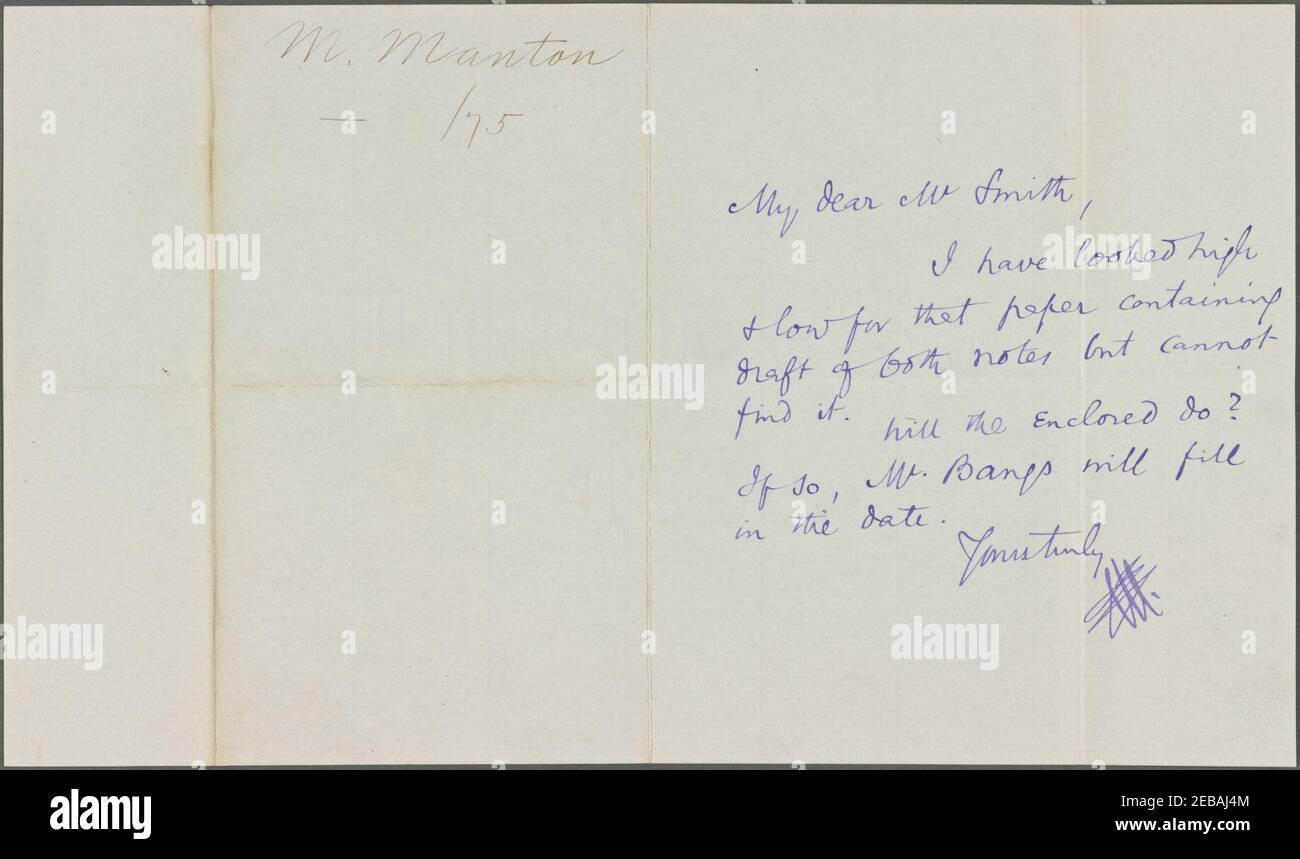 M. Manton
— /75
My dear Mr Smith,
I have looked high
& low for that paper containing
draft of both notes but cannot
find it. Will the enclosed do?
If so, Mr. Bangs will fill
in the date.
Yours truly
alamy
alamy
Image ID: 2EBAJ4M
www.alamy.com